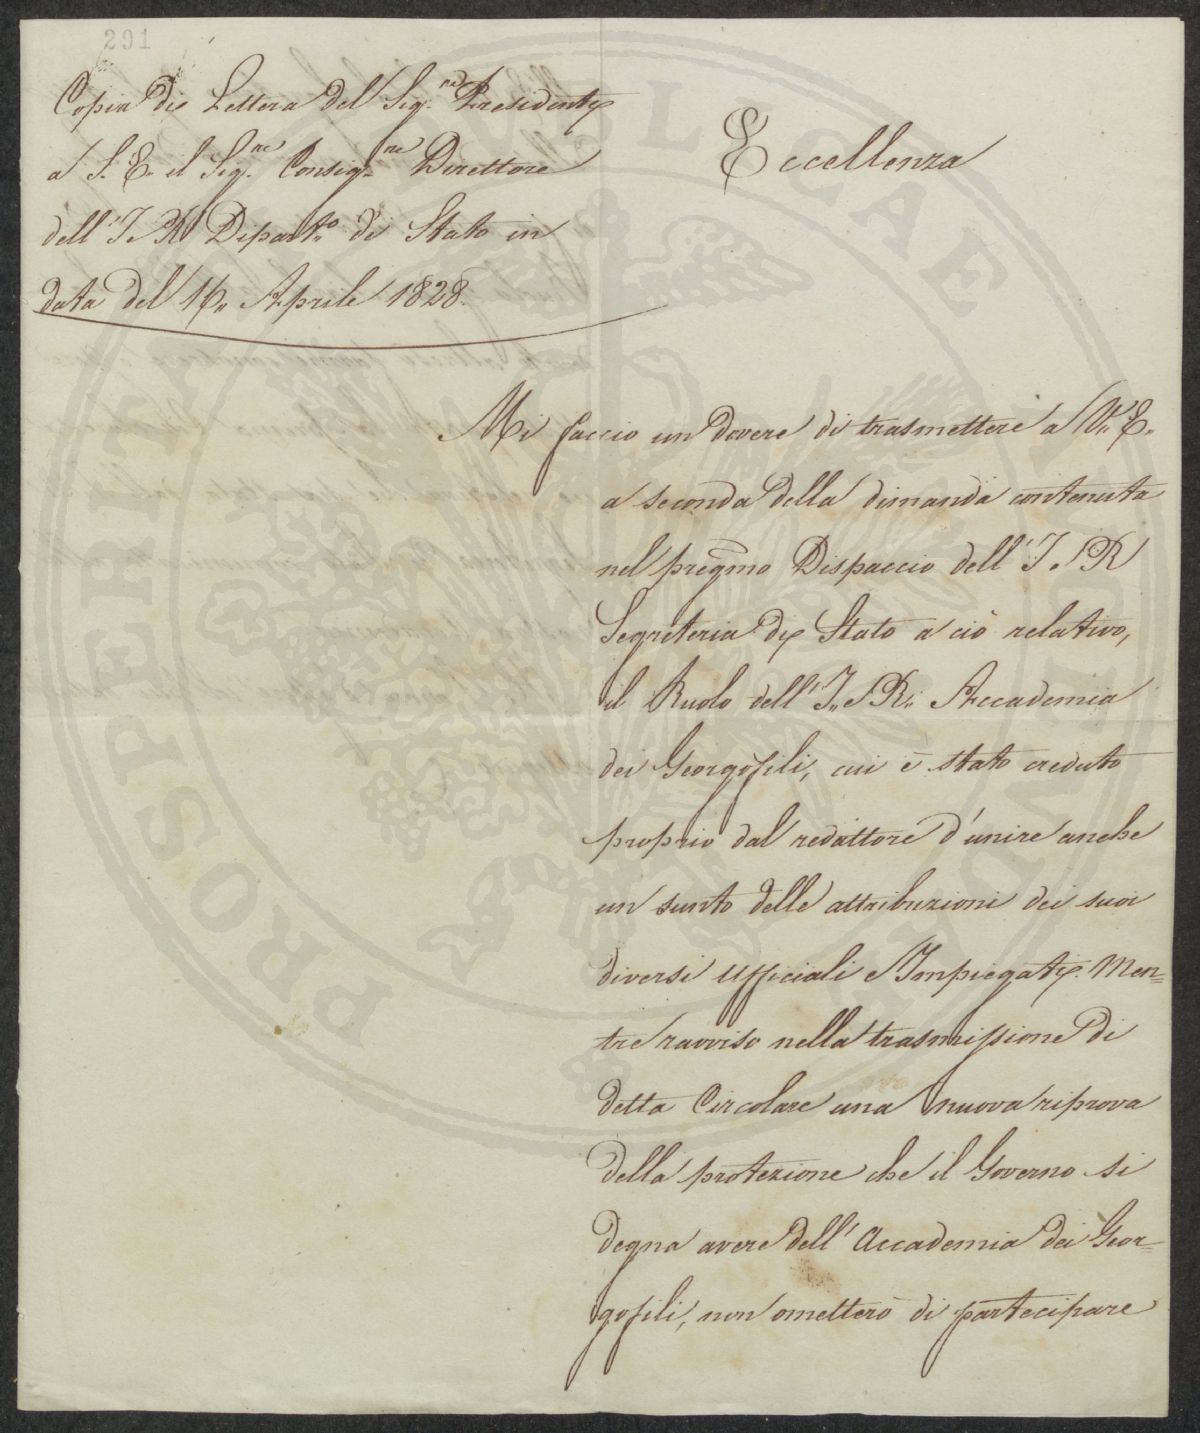 291
Copia di Lettera del Sig.re Presidente
a S. E. il Sig.re Consig.re Direttore
dell'I. R. Dipart.o di Stato in
data del Aprile 1828.
Eccellenza
Mi faccio un dovere di trasmettere a V. E.
a seconda della dimanda contenuta
nel pregmo Dispaccio dell'I. R
Segreteria di Stato a ciò relativo,
il Ruolo dell'I. e R. Accademia
dei Georgofili, cui è stato creduto
proprio dal redattore d'unire anche
un sunto delle attribuzioni dei suoi
diversi Ufficiali e Impiegati. Men=
tre ravviso nella trasmissione di
detta Circolare una nuova riprova
della protezione che il Governo si
degna avere dell'Accademia dei Geor=
gofili, non ometterò di partecipare
PROSPERITATI PUBLICAE AUGENDAE